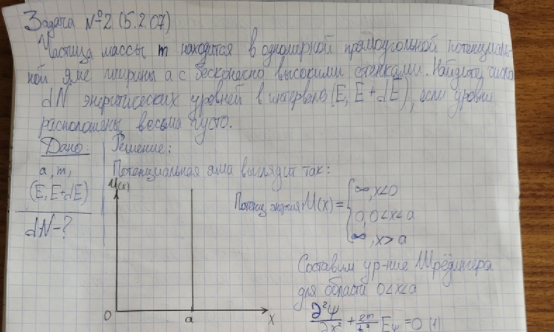 Задача №2 (5.2.07)
Частица массы m находится в одномерной прямоугольной потенциаль-
ной яме ширины a с бесконечно высокими стенками. Найдите число
dN энергетических уровней в интервале (E, E+dE), если уровни
расположены весьма густо.
Дано:
a, m,
(E, E+dE)
dN-?
Решение:
Потенциальная яма выглядит так:
U(x)
0
a
x
Потенц. энергия U(x) = { ∞, x<0
0, 0<x<a
∞, x>a
Составим ур-ние Шрёдингера
для области 0<x<a
∂²Ψ/∂x² + 2m/ħ² EΨ = 0 (1)